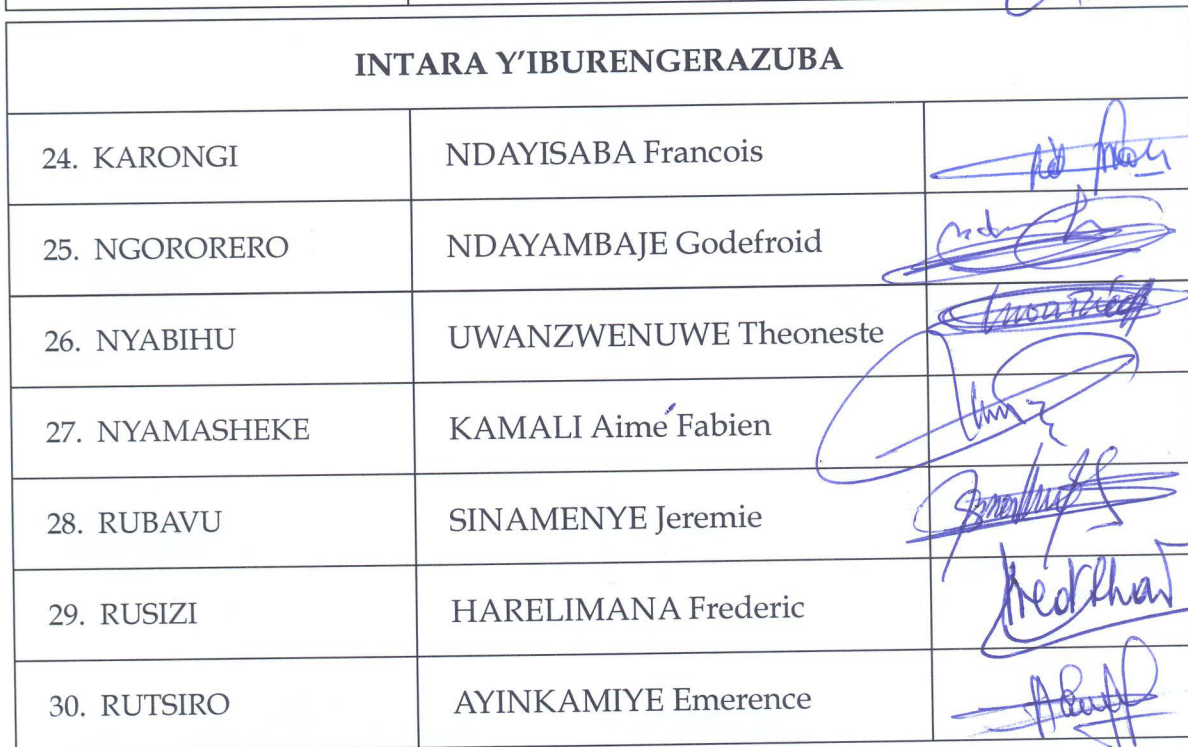 INTARA Y'IBURENGERAZUBA
24. KARONGI NDAYISABA Francois
25. NGORORERO NDAYAMBAJE Godefroid
26. NYABIHU UWANZWENUWE Theoneste
27. NYAMASHEKE KAMALI Aimé Fabien
28. RUBAVU SINAMENYE Jeremie
29. RUSIZI HARELIMANA Frederic
30. RUTSIRO AYINKAMIYE Emerence